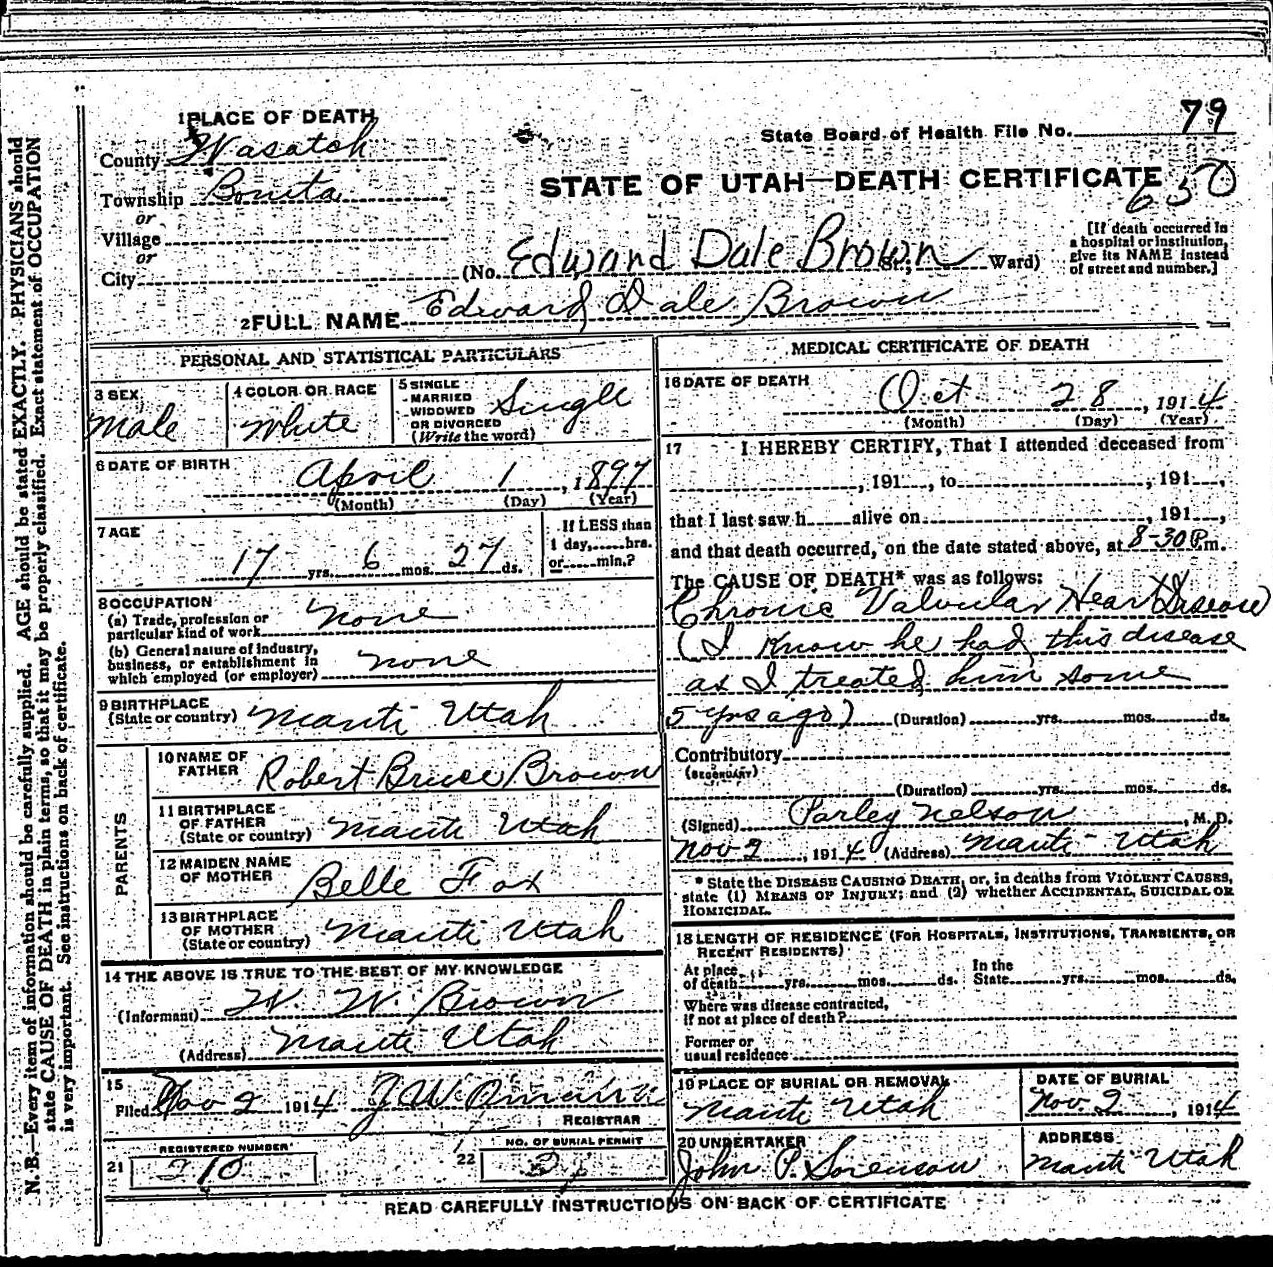 1 PLACE OF DEATH
County Wasatch
State Board of Health File No. 79
Township Bonita
STATE OF UTAH—DEATH CERTIFICATE
650
or
Village
or
City
(No. Edward Dale Brown St.; Ward)
[If death occurred in
a hospital or institution,
give its NAME instead
of street and number.]
2 FULL NAME Edward Dale Brown
PERSONAL AND STATISTICAL PARTICULARS
3 SEX
Male
4 COLOR OR RACE
White
5 SINGLE
MARRIED
WIDOWED
OR DIVORCED
(Write the word)
Single
6 DATE OF BIRTH
April 1, 1897
(Month) (Day) (Year)
7 AGE
17 yrs. 6 mos. 27 ds.
If LESS than
1 day, hrs.
or min.?
8 OCCUPATION
(a) Trade, profession or
particular kind of work none
(b) General nature of industry,
business, or establishment in
which employed (or employer) none
9 BIRTHPLACE
(State or country) Manti Utah
PARENTS
10 NAME OF
FATHER Robert Bruce Brown
11 BIRTHPLACE
OF FATHER
(State or country) Manti Utah
12 MAIDEN NAME
OF MOTHER Belle Fox
13 BIRTHPLACE
OF MOTHER
(State or country) Manti Utah
14 THE ABOVE IS TRUE TO THE BEST OF MY KNOWLEDGE
(Informant) W. W. Brown
(Address) Manti Utah
15
Filed Nov 2 1914 J W
REGISTRAR
REGISTERED NUMBER
21 210
NO. OF BURIAL PERMIT
22
MEDICAL CERTIFICATE OF DEATH
16 DATE OF DEATH
Oct 28, 1914
(Month) (Day) (Year)
17 I HEREBY CERTIFY, That I attended deceased from
, 191 , to , 191 ,
that I last saw h alive on , 191 ,
and that death occurred, on the date stated above, at 8-30 P m.
The CAUSE OF DEATH* was as follows:
Chronic Valvular Heart Disease
(I know he had this disease
as I treated him some
5 yrs ago) (Duration) yrs. mos. ds.
Contributory
(SECONDARY)
(Duration) yrs. mos. ds.
(Signed) Parley Nelson, M. D.
Nov 2, 1914 (Address) Manti Utah
* State the DISEASE CAUSING DEATH, or, in deaths from VIOLENT CAUSES,
state (1) MEANS OF INJURY; and (2) whether ACCIDENTAL, SUICIDAL OR
HOMICIDAL.
18 LENGTH OF RESIDENCE (FOR HOSPITALS, INSTITUTIONS, TRANSIENTS, OR
RECENT RESIDENTS)
At place
of death yrs. mos. ds.
In the
State yrs. mos. ds.
Where was disease contracted,
if not at place of death?
Former or
usual residence
19 PLACE OF BURIAL OR REMOVAL
Manti Utah
DATE OF BURIAL
Nov. 2, 1914
20 UNDERTAKER
John P. Sorenson
ADDRESS
Manti Utah
READ CAREFULLY INSTRUCTIONS ON BACK OF CERTIFICATE
N. B.—Every item of information should be carefully supplied. AGE should be stated EXACTLY. PHYSICIANS should
state CAUSE OF DEATH in plain terms, so that it may be properly classified. Exact statement of OCCUPATION
is very important. See instructions on back of certificate.